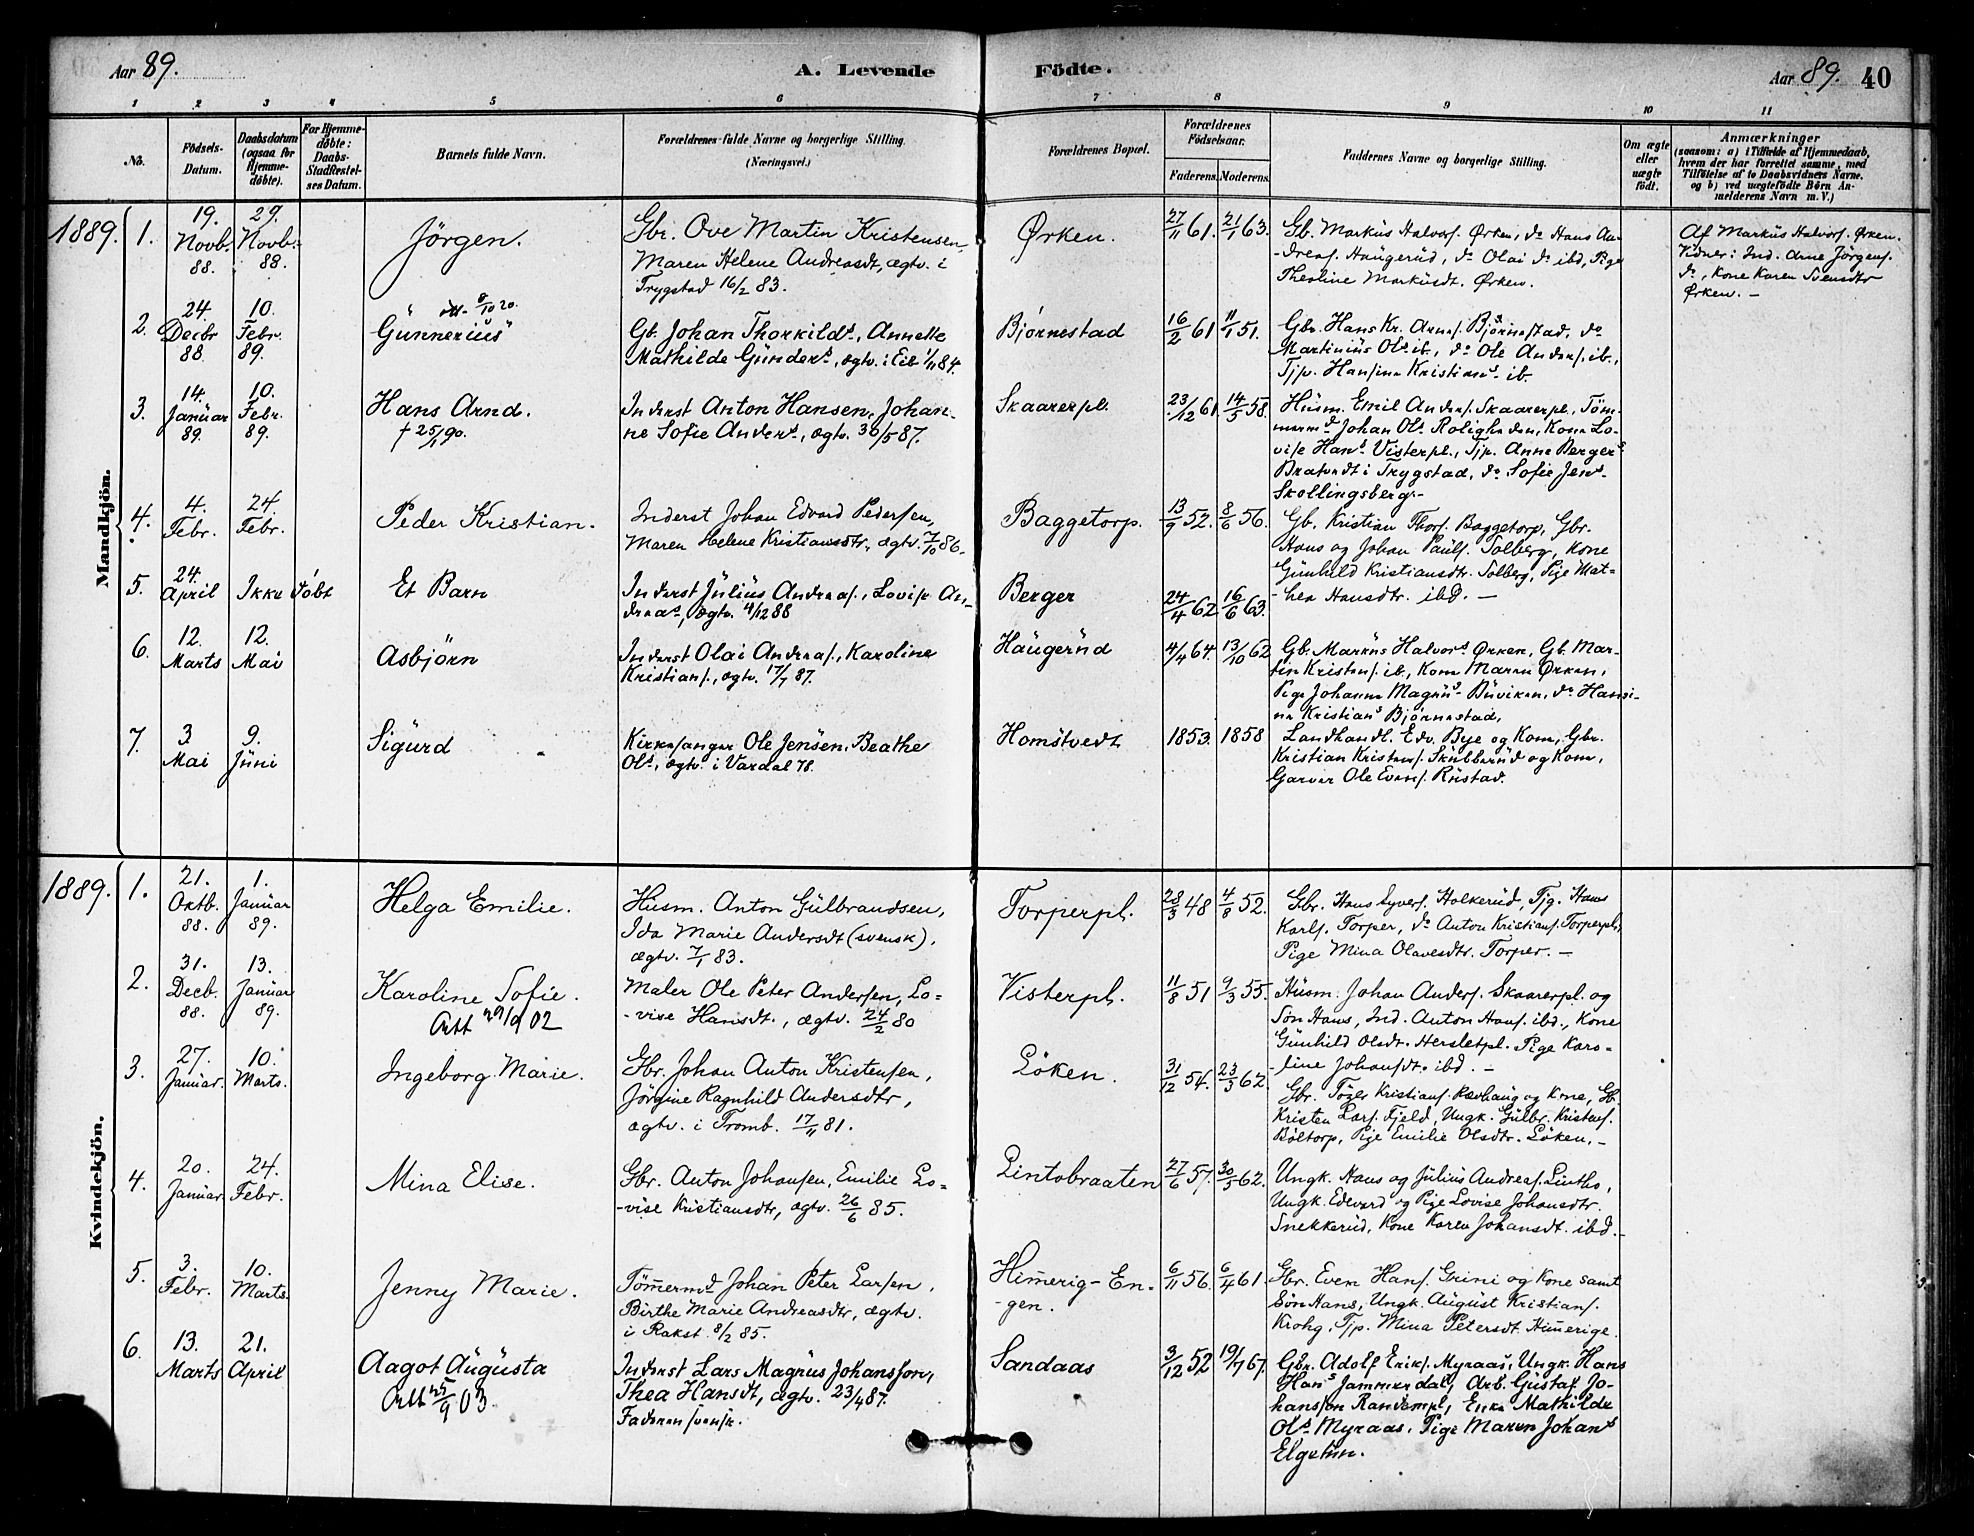 Aar 89.
A. Levende
Födte.
Aar 89. 40
1 2 3 4 5 6 7 8 9 10 11
No.
Födsels-
Datum.
Daabsdatum
(ogsaa for
Hjemme-
döbte).
For Hjemme-
döbte:
Daabs-
Stadfæstel-
ses Datum.
Barnets fulde Navn.
Forældrenes fulde Navne og borgerlige Stilling.
(Næringsvei.)
Forældrenes Bopæl.
Forældrenes
Födselsaar.
Faderens. Moderens.
Faddernes Navne og borgerlige Stilling.
Om ægte
eller
uægte
födt.
Anmærkninger
(saasom: a) i Tilfælde af Hjemmedaab,
hvem der har forrettet samme, med
Tilföielse af to Daabsvidners Navne,
og b) ved uægtefödte Börn An-
melderens Navn m. V.)
Mandkjön.
1889. 1.
19.
Novb.
88.
29.
Novb.
88.
Jörgen.
Gbr. Ove Martin Kristensen,
Maren Helene Andreasdt, ægtv. i
Trygstad 16/2 83.
Ørken.
27/11 61. 21/1 63.
Gb. Markus Halvors. Ørken, do Hans An-
-dreas. Haugerud, do Olai do ibd, Pige
Theoline Markusdt. Ørken.
Af Markus Halvors. Ørken.
Vidner: Ind. Arne Jörgens.
do, Kone Karen Svensdtr
Ørken. —
2.
24.
Decbr
88.
10.
Febr.
89.
8/10 20.
Gunnerius
Gb. Johan Thorkilds, Annette
Mathilde Gunders, ægtv. i Eib 1/11 84.
Bjørnestad
16/2 61 11/1 51.
Gbr. Hans Kr. Arnes. Bjørnestad, do
Martinius Ols ib., do Ole Anders. ib.,
Tjp. Hansine Kristians ib.
3.
14.
Januar
89.
10.
Febr.
89.
Hans Arnd.
† 25/1 90.
Inderst Anton Hansen, Johan-
ne Sofie Anders, ægtv. 30/5 87.
Skaarerpl.
23/12 61. 14/5 58.
Husm. Emil Anders. Skaarerpl., Töm-
mermd Johan Ols Roligheden, Kone Lo-
vise Hans Visterpl., Tjp. Anne Bergers
Bratvedt i Trygstad, do Sofie Jens
Skollingsberg. -
4.
4.
Febr.
24.
Febr.
Peder Kristian.
Inderst Johan Edvard Pedersen,
Maren Helene Kristiansdtr, ægtv. 7/10 86.
Baggetorp.
13/9 52. 8/6 56.
Gb. Kristian Thors. Baggetorp, Gbr.
Hans og Johan Pauls. Solberg, Kone
Gunhild Kristiansdtr. Solberg, Pige Mat-
-hea Hansdtr. ibd. —
5.
24.
April
Ikke döbt
Et Barn
Inderst Julius Andreas., Lovise An-
dreas, ægtv. 4/12 88
Berger
24/4 62 16/6 63.
6.
12.
Marts
12.
Mai
Asbjörn
Inderst Olai Andreas., Karoline
Kristians., ægtv. 17/7 87.
Haugerud
4/4 64. 13/10 62
Gb. Markus Halvors Ørken, Gb. Mar-
tin Kristens. ib., Kone Maren Ørken,
Pige Johanne Magnus Buviken, do Hansi-
ne Kristians Bjørnestad.
7.
3.
Mai
9.
Juni
Sigurd
Kirkesanger Ole Jensen, Beathe
Ols, ægtv. i Vardal 78.
Homstvedt
1853. 1858
Landhandl. Edv. Bye og Kone, Gbr.
Kristian Kristens. Skubberud og Kone,
Garver Ole Evens. Rustad.
Kvindekjön.
1889. 1.
21.
Oktb.
88.
1.
Januar
89.
Helga Emilie.
Husm. Anton Gulbrandsen,
Ida Marie Andersdt (svensk),
ægtv. 7/1 83.
Torperpl.
28/3 48 4/8 52.
Gbr. Hans Syvers. Holkerud, Tjg. Hans
Karls. Torper, do Anton Kristians. Torperpl.,
Pige Mina Olavesdtr. Torper. —
2.
31.
Decb.
88.
13.
Januar
89.
Karoline Sofie.
Att 29/9 02
Maler Ole Peter Andersen, Lo-
-vise Hansdt., ægtv. 24/2 80
Visterpl.
11/8 51 9/3 55.
Husm. Johan Anders. Skaarerpl. og
Søn Hans, Ind. Anton Hans. ibd., Kone
Gunhild Olsdt. Hersletpl. Pige Karo-
-line Johansdt. ibd. -
3.
27.
Januar.
10.
Marts.
Ingeborg Marie.
Gbr. Johan Anton Kristensen,
Jörgine Ragnhild Andersdtr,
ægtv. i Tromb. 17/11 81.
Löken.
31/12 54. 23/3 62.
Gbr. Kristians. Rævhaug og Kone, Gb.
Kristen Lars. Fjeld, Ungk. Gulbr. Kristens.
Böltorp, Pige Emilie Olsdtr. Löken. -
4.
20.
Januar
24.
Febr.
Mina Elise.
Gbr. Anton Johansen, Emilie Lo-
-vise Kristiansdtr, ægtv. 26/6 85.
Lintobraaten
27/6 57. 30/5 62.
Ungk. Hans og Julius Andreas. Lintho,
Ungk. Edevard og Pige Lovise Johansdtr.
Snekkerud, Kone Karen Johansdt. ibd. -
5.
3.
Febr.
10.
Marts.
Jenny Marie.
Tömermd Johan Peter Larsen,
Birthe Marie Andreasdtr, ægtv.
i Rakst. 8/2 85.
Himerig-En-
-gen.
6/11 56. 6/4 61.
Gbr. Even Hans. Grini og Kone samt
Søn Hans, Ungk. August Kristians.
Krohg, Tjp. Mina Petersdt. Himerige.
6.
13.
Marts
21.
April
Aagot Augusta
Att 25/9 03.
Inderst Lars Magnus Johansson,
Thea Hansdt, ægtv. 23/4 87.
Faderen svensk.
Sandaas
3/12 52 19/7 67.
Gbr. Adolf Eriks. Myraas, Ungk. Hans
Hans Jammerdal, Arb. Gustaf Jo-
hansson Randempl, Enke Mathilde
Ols Myraas, Pige Maren Johans
Elgetun.